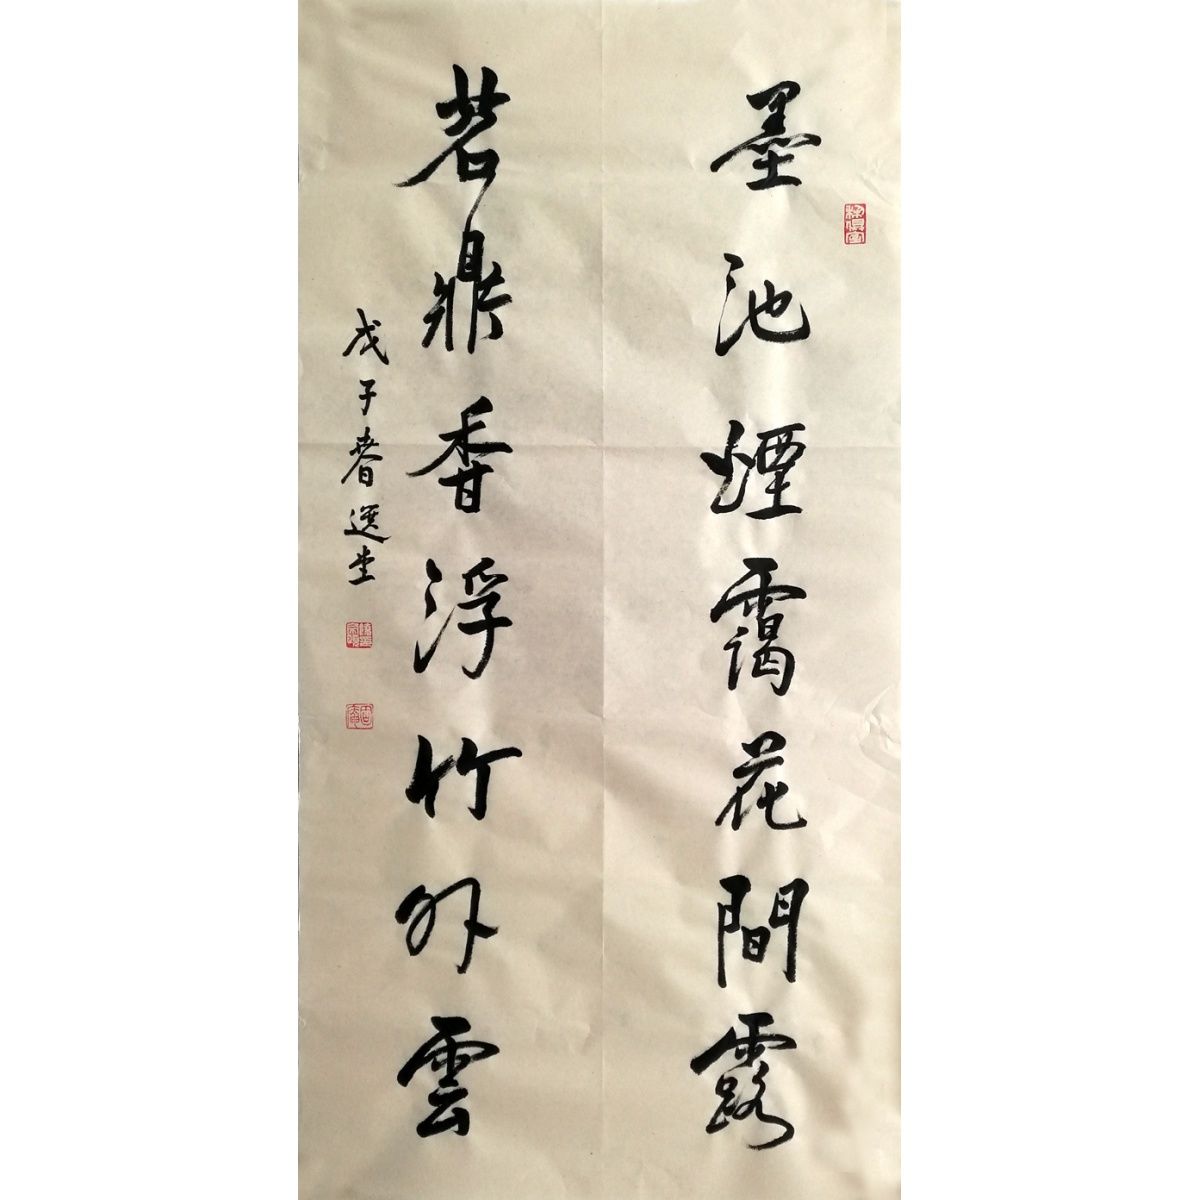 墨池煙靄花間露
茗鼎香浮竹外雲
戊子春選堂